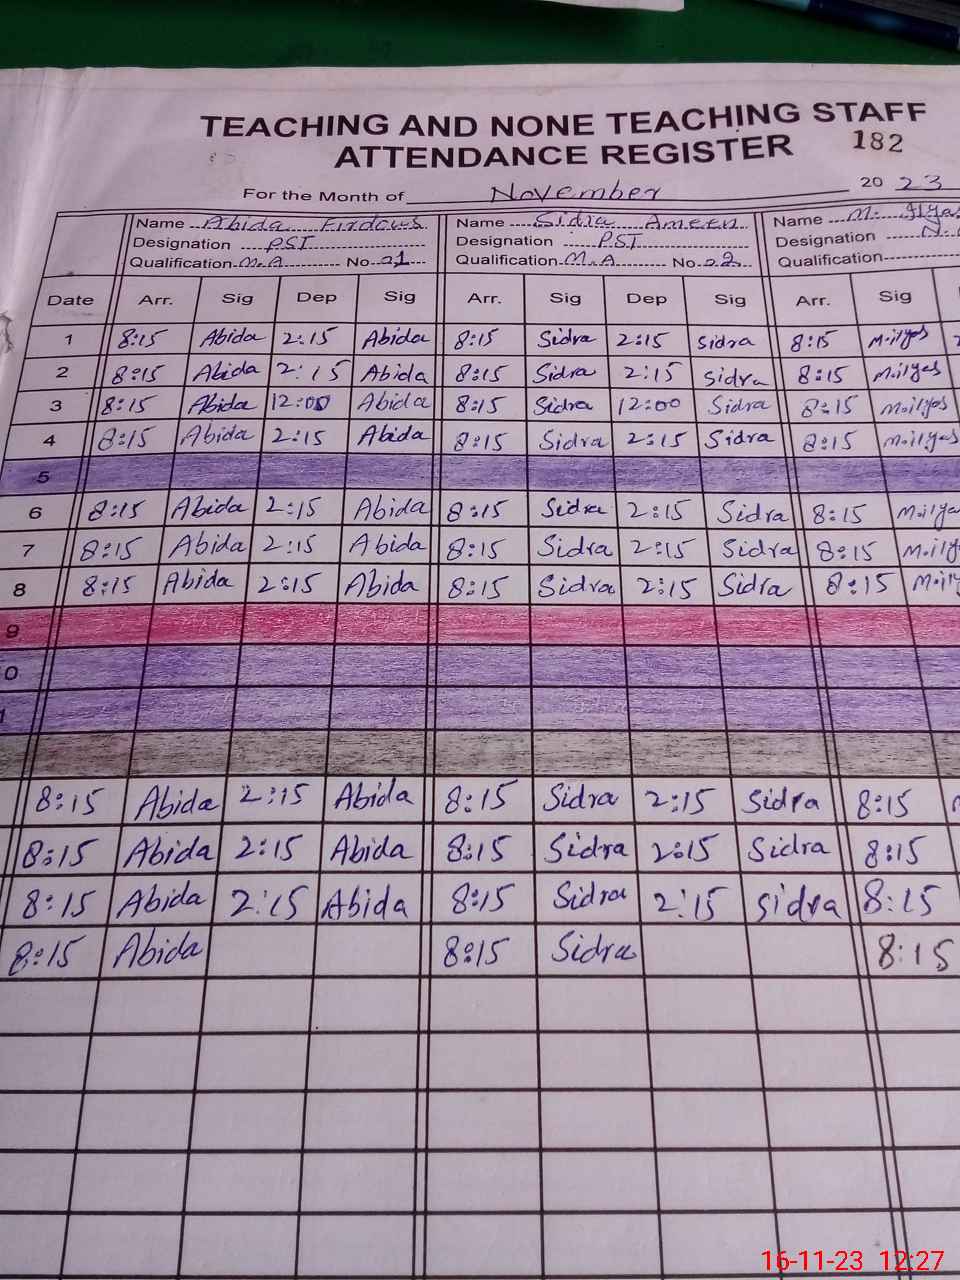 TEACHING AND NONE TEACHING STAFF
ATTENDANCE REGISTER 182
For the Month of November 20 23
Name Abida Firdous Name Sidra Ameen Name M. Ilyas
Designation PST Designation PST Designation
Qualification M.A No 01 Qualification M.A No 02 Qualification
Date Arr. Sig Dep Sig Arr. Sig Dep Sig Arr. Sig
1 8:15 Abida 2:15 Abida 8:15 Sidra 2:15 Sidra 8:15 M.ilyas
2 8:15 Abida 2:15 Abida 8:15 Sidra 2:15 Sidra 8:15 M.ilyas
3 8:15 Abida 12:00 Abida 8:15 Sidra 12:00 Sidra 8:15 M.ilyas
4 8:15 Abida 2:15 Abida 8:15 Sidra 2:15 Sidra 8:15 M.ilyas
5
6 8:15 Abida 2:15 Abida 8:15 Sidra 2:15 Sidra 8:15 M.ilya
7 8:15 Abida 2:15 Abida 8:15 Sidra 2:15 Sidra 8:15 M.ily
8 8:15 Abida 2:15 Abida 8:15 Sidra 2:15 Sidra 8:15 M.ily
9
0
1
8:15 Abida 2:15 Abida 8:15 Sidra 2:15 Sidra 8:15
8:15 Abida 2:15 Abida 8:15 Sidra 2:15 Sidra 8:15
8:15 Abida 2:15 Abida 8:15 Sidra 2:15 Sidra 8:15
8:15 Abida 8:15 Sidra 8:15
16-11-23 12:27